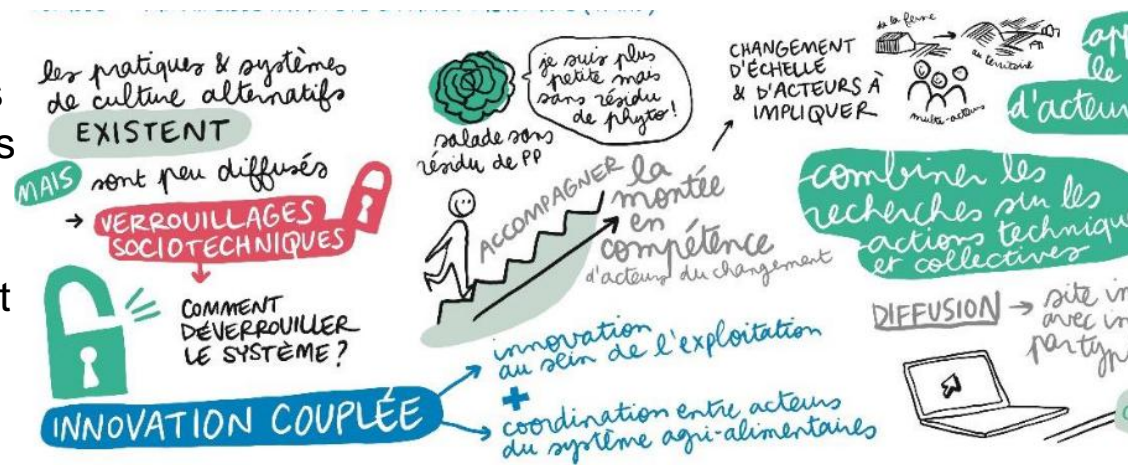 les pratiques & systèmes
de culture alternatifs
EXISTENT
MAIS sont peu diffusés
→ VERROUILLAGES
SOCIOTECHNIQUES
COMMENT
DÉVERROUILLER
LE SYSTÈME ?
INNOVATION COUPLÉE
innovation
au sein de l'exploitation
+
coordination entre acteurs
du système agri-alimentaires
je suis plus
petite mais
sans résidu
de phyto !
salade sans
résidu de PP
ACCOMPAGNER la
montée
en
compétence
d'acteurs du changement
CHANGEMENT
D'ÉCHELLE
& D'ACTEURS À
IMPLIQUER
de la ferme
au territoire
multi-acteurs
le
d'acteur
combiner les
recherches sur les
actions technique
et collectives
DIFFUSION → site
avec
par